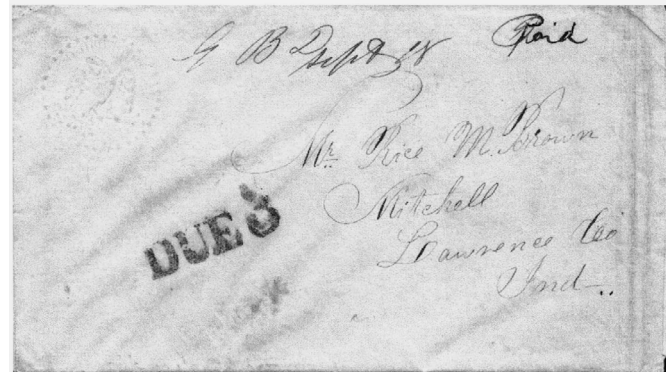 G B D Sept 28 Paid
Mr. Rice M. Brown
Mitchell
Lawrence Co
Ind..
DUE 3